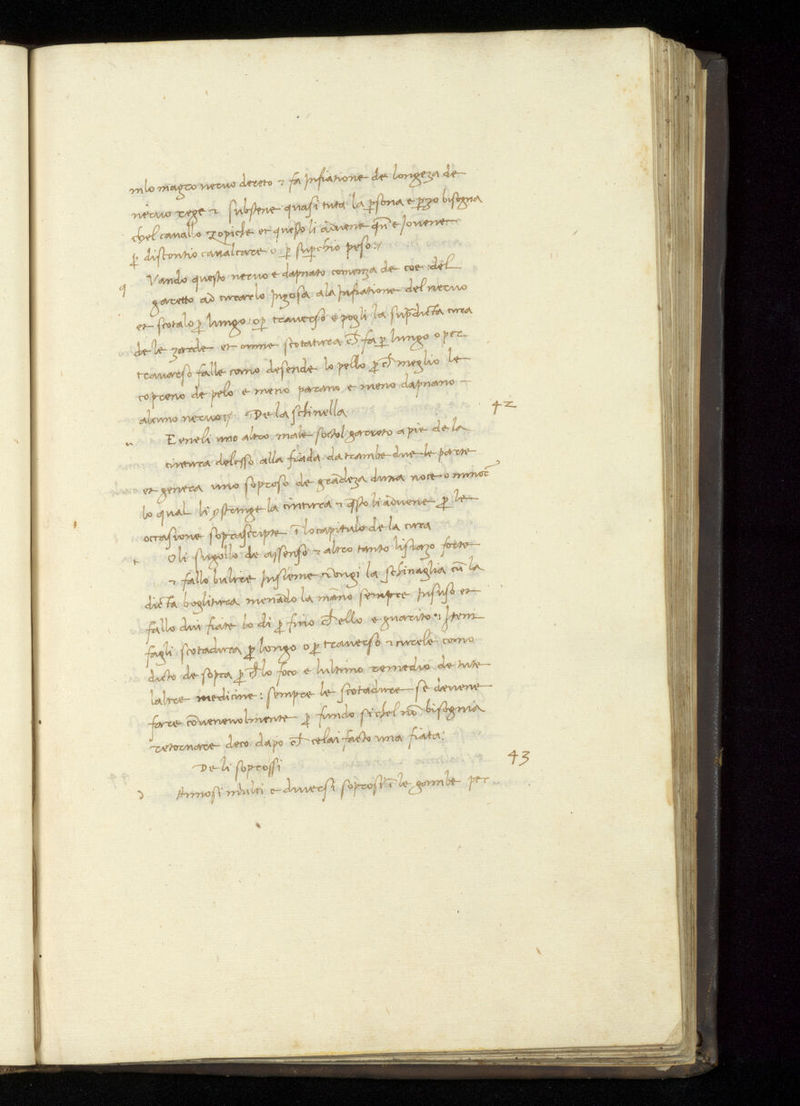 nilo magro nervo dereto ⁊ fa Infiatione de longeza de
nervo rege ⁊ substene quasi tuta la p̱sona e p̱zo bisogna
chel cavallo zopiche et questo li avene qn̄ e Iovene
p̱ discontio cavalcare o p̱ sup̱chio peso:/
q Vando questo nervo e dapnato comenza de coe del
garetto ad curarlo Ingrosa ala Infiatione del nervo
et scotalo p̱ lungo o p̱ traverso e pogli la sup̱dicta cura
de le zarde et omne scotatura ch̄ fa p̱ lungo o per
travarso falle como desende lo pello p̱ ch̄ meglio le
copreno de pelo e meno parano e meno dapnano
alcuno nervo:/ De la schinella 42
Eneli uno altro male sottol garreto a pie de la
cintura delesso alla fiada da trambe due le parte
et genera uno soproso de grādeza duna noce o minor
lo qual li ꝯstringe la cintura ⁊ q̄sto li advene p̱ le
occasione soprascripte ī lo capitulo de la cura
t Oli sugollo de assenso ⁊ altro tanto lisiazo forte
⁊ fallo bulire Insieme ⁊ ongi la schinaglia cū la
dicta boglitura menādo la māno sempre Insuso et
fallo dui fiate lo di p̱ fino ch̄ ello e guarito: Item
fagli scotadura p̱ longo o p̱ traverso ⁊ curele como
dicto de sopra p̱ ch̄ lo foco e lultimo remedio de tute
laltre medicine: sempre le scotadure se devene
fare cōvenevolmente p̱ fundo si chel nō bisognia
retornare deco dapo ch̄ celai facto una fiata:
De li soprossi 43
D Annosi multi e diversi soprosi ī le gambe per